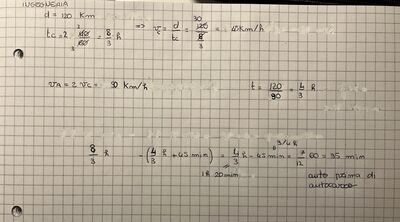 INGEGNERIA
d = 120 Km
tc = 2 160/60 = 8/3 h => vc = d/tc = 120/(8/3) = 45 km/h
vA = 2 vc = 90 Km/h t = 120/90 = 4/3 h
8/3 h - (4/3 h + 45 min) = 4/3 h - 45 min = 7/12 60 = 35 min
3/4 h
1h 20min
auto prima di
autocarro